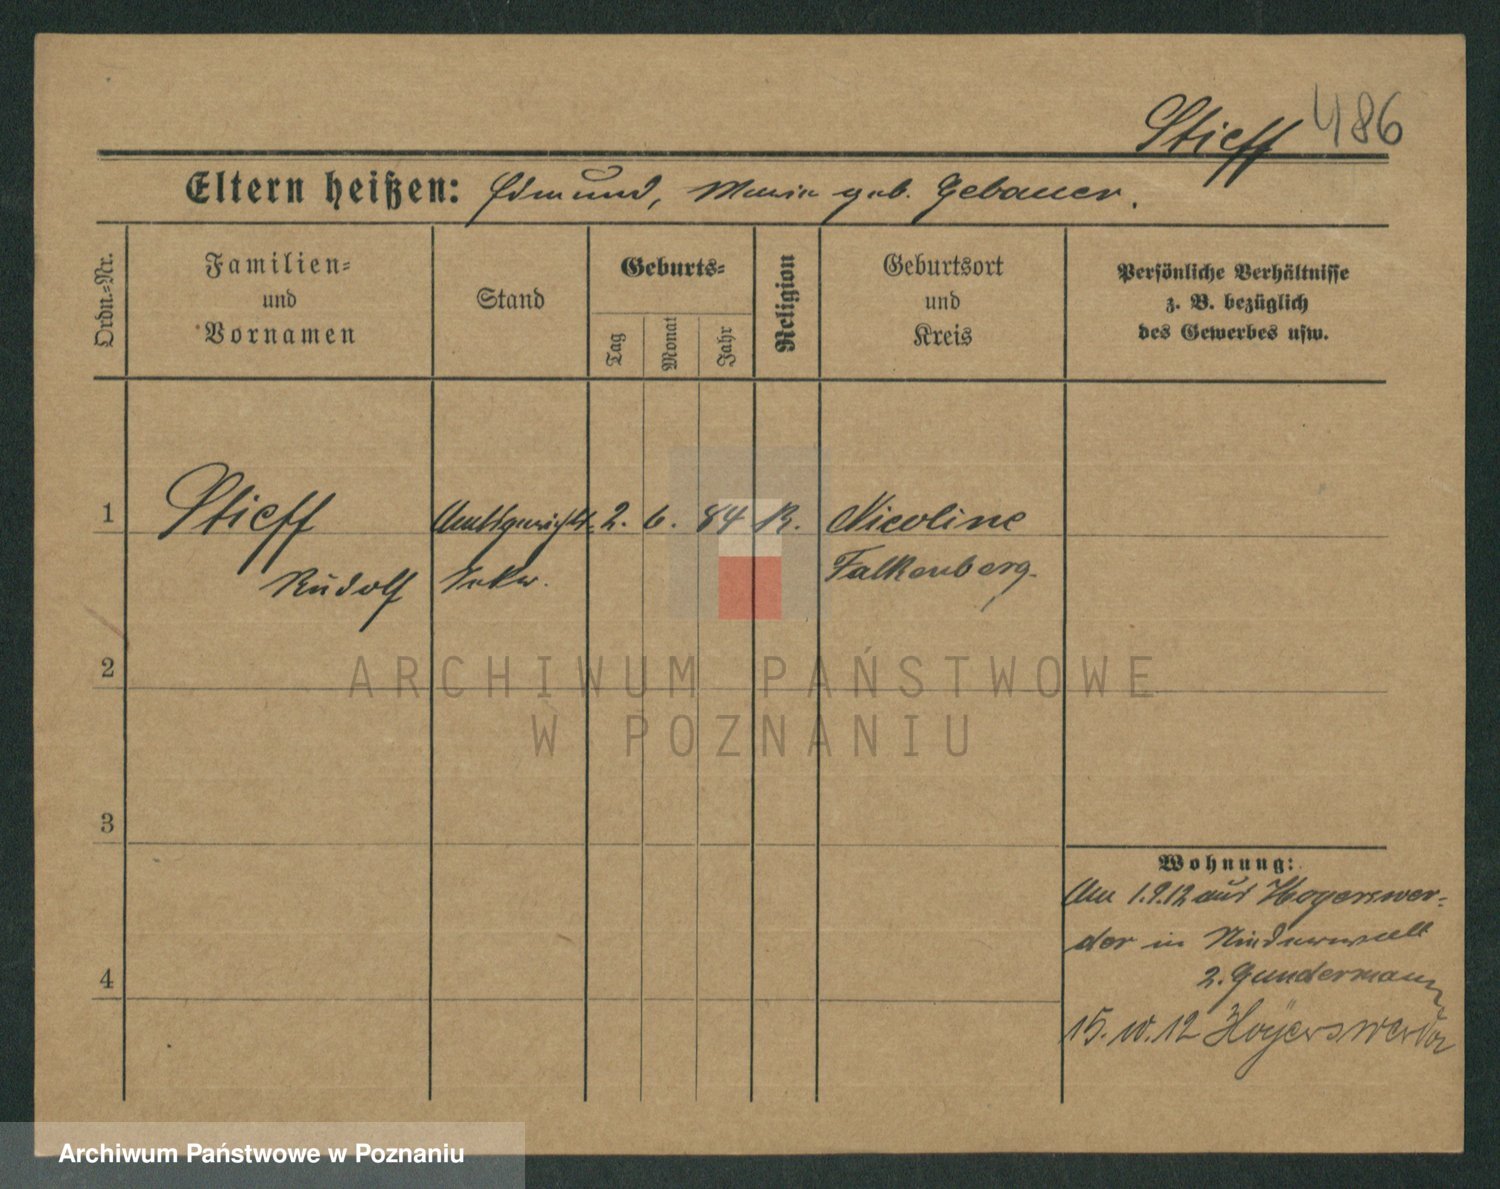 Stieff 486
Eltern heißen: Edmund, Maria geb. Gebauer.
Ordn.-Nr.
Familien-
und
Vornamen
Stand
Geburts-
Tag
Monat
Jahr
Religion
Geburtsort
und
Kreis
Persönliche Verhältnisse
z. B. bezüglich
des Gewerbes usw.
1 Stieff Amtsgerichts- 2. 6. 84 K. Nicoline
Rudolf Sekr. Falkenberg.
2
ARCHIWUM PAŃSTWOWE
W POZNANIU
3
Wohnung:
Am 1.9.12 aus Hoyerswer-
der in
4
2. Gundermann
15. 10. 12 Hoyerswerda
Archiwum Państwowe w Poznaniu